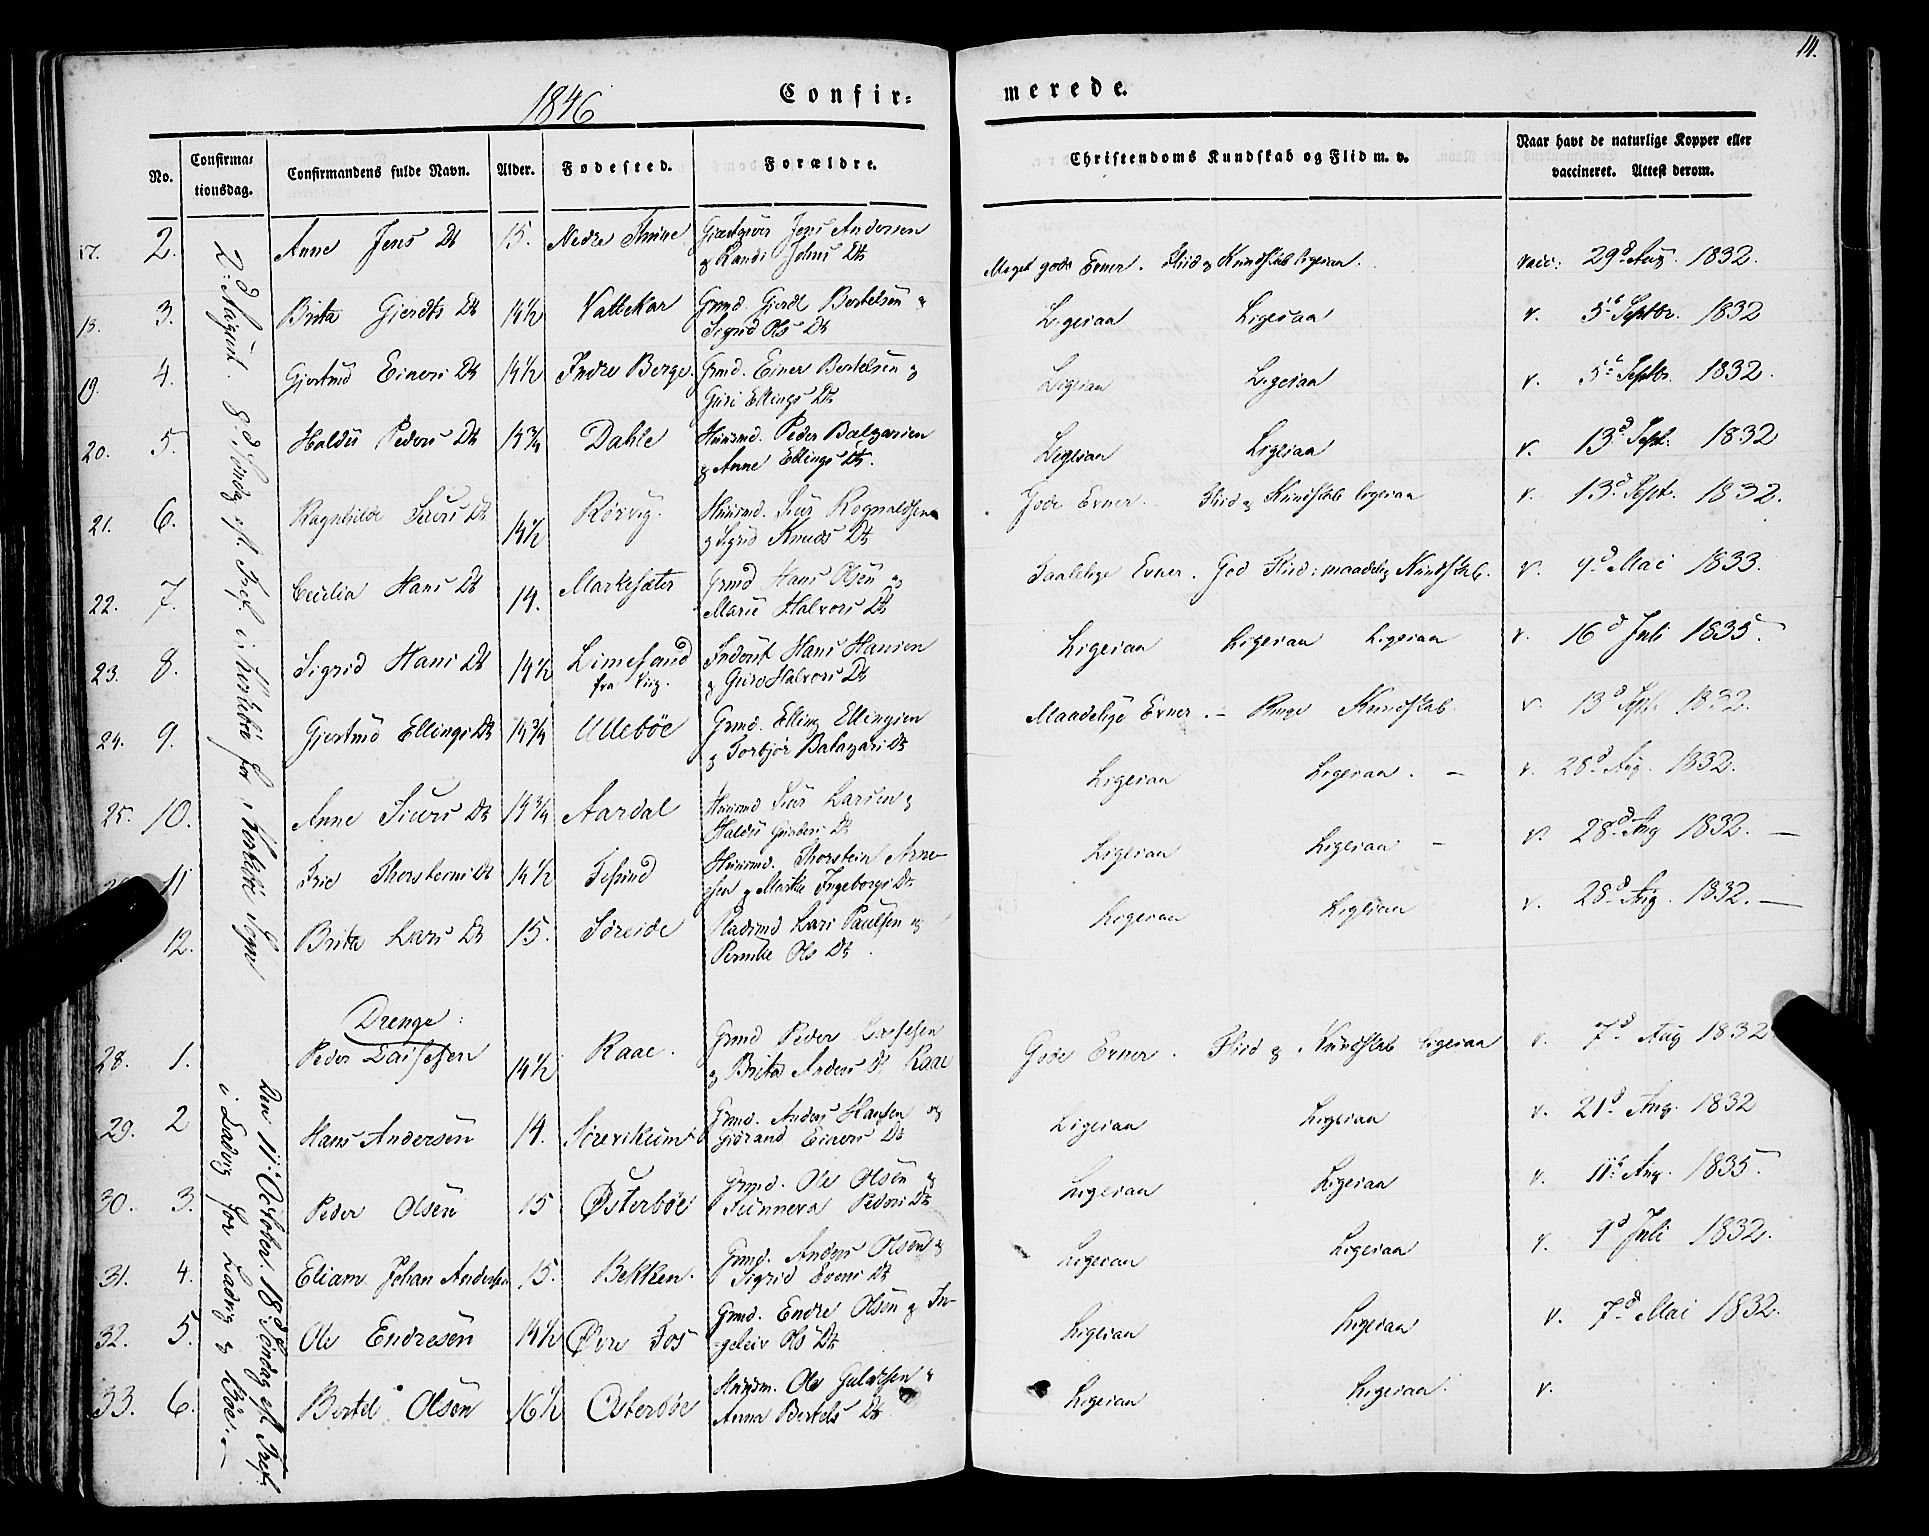 14.
1846
Confir=
merede.
No.
Confirma=
tionsdag.
Confirmandens fulde Navn.
Alder.
Fødested.
Forældre.
Christendoms Kundskab og Flid m. v.
Naar havt de naturlige Kopper eller
vaccineret. Attest derom.
17. 2. Anne Jens Dt 15. Nedre Gaardgiver Jens Andersen
& Randi Johns Dt
Meget gode Evner. Flid & Kundskab ligesaa. vacc: 29d Aug. 1832.
18. 3. Brita Gjerdts Dt 14½ Nattekar Grmd. Gjerdt Bertelsen &
Sigrid Ols Dt
Ligesaa Ligesaa v. 5d Septbr. 1832
19. 4. Gjertrud Einers Dt 14½ Indre Berge. Grmd. Einer Bertelsen &
Guri Ellings Dt
Ligesaa Ligesaa v. 5d Septbr. 1832.
20. 5. Haldis Peders Dt 15¾ Dahle Huusmd. Peder Balzersen
& Anne Ellings Dt.
Ligesaa Ligesaa v. 13d Sept. 1832
21. 6. Ragnhilde Siurs Dt 14½ Rørvig. Huusmd. Siur Rognaldsen
& Sigrid Knuds Dt
Gode Evner. Flid & Kundskab ligesaa v. 13d Sept. 1832.
22. 7. Cecilia Hans Dt 14. Markesæter Grmd Hans Olsen &
Marie Halvors Dt
Taalelige Evner. God Flid; maadelig Kundskab. v. 9d Mai 1833.
23. 8. Sigrid Hans Dt 14½ Limesand
fra Vig.
Inderst Hans Hansen
& Guro Halvors Dt
Ligesaa Ligesaa Ligesaa v. 16d Juli 1835.
24. 9. Gjertrud Ellings Dt 15¾ Ullebøe Grmd. Elling Ellingsen
& Torbjør Balzars Dt
Maadelige Evner. – Ringe Kundskab. v. 13d Sept. 1832.
25. 10. Anne Siurs Dt 15¾ Aardal Huusmd Siur Larsen &
Haldis Dt
Ligesaa Ligesaa. – v. 28d Aug. 1832.
11 Thorsteins Dt 14½ Huusmd. Thorstein Arne-
sen & Marthe Ingeborgs Dt
Ligesaa Ligesaa – v. 28d Aug 1832. –
12. Brita Lars Dt 15. Søreide Pladsmd Lars Paulsen &
Pernille Ols Dt.
Ligesaa Ligesaa v. 28d Aug. 1832. –
Drenge:
28. 1. Peder 14½ Raae. Grmd Peder
& Brita Anders Dt Raae
Gode Evner. Flid & Kundskab ligesaa v. 7d Aug 1832
29. 2 Hans Andersen 14. Grmd. Anders Hansen og
Gjørand Einers Dt
Ligesaa Ligesaa v. 21d Aug. 1832
30. 3. Peder Olsen 15 Østerbøe Grmd. Ole Olsen &
Sunneva Peders Dt
Ligesaa Ligesaa v. 11d Aug. 1835.
31. 4. Eliam Johan Andersen 15. Bekken. Grmd. Anders Olsen &
Sigrid Evens Dt
Ligesaa Ligesaa v. 9d Juli 1832.
32. 5. Ole Endresen 14½ Øvre Fos Grmd. Endre Olsen & In-
geleiv Ols Dt
Ligesaa Ligesaa v. 7d Mai 1832.
33. 6. Bertel Olsen 16½ Østerbøe Huusm. Ole &
Anna Bertels Dt
Ligesaa Ligesaa. v.
2d August. 8d Søndag eft. Tref. i Kirkebøe for Kirkebøe Sogn
Den 11t October. 18d Søndag eft Tref.
i Ladvig for Ladvig & Bøe. –